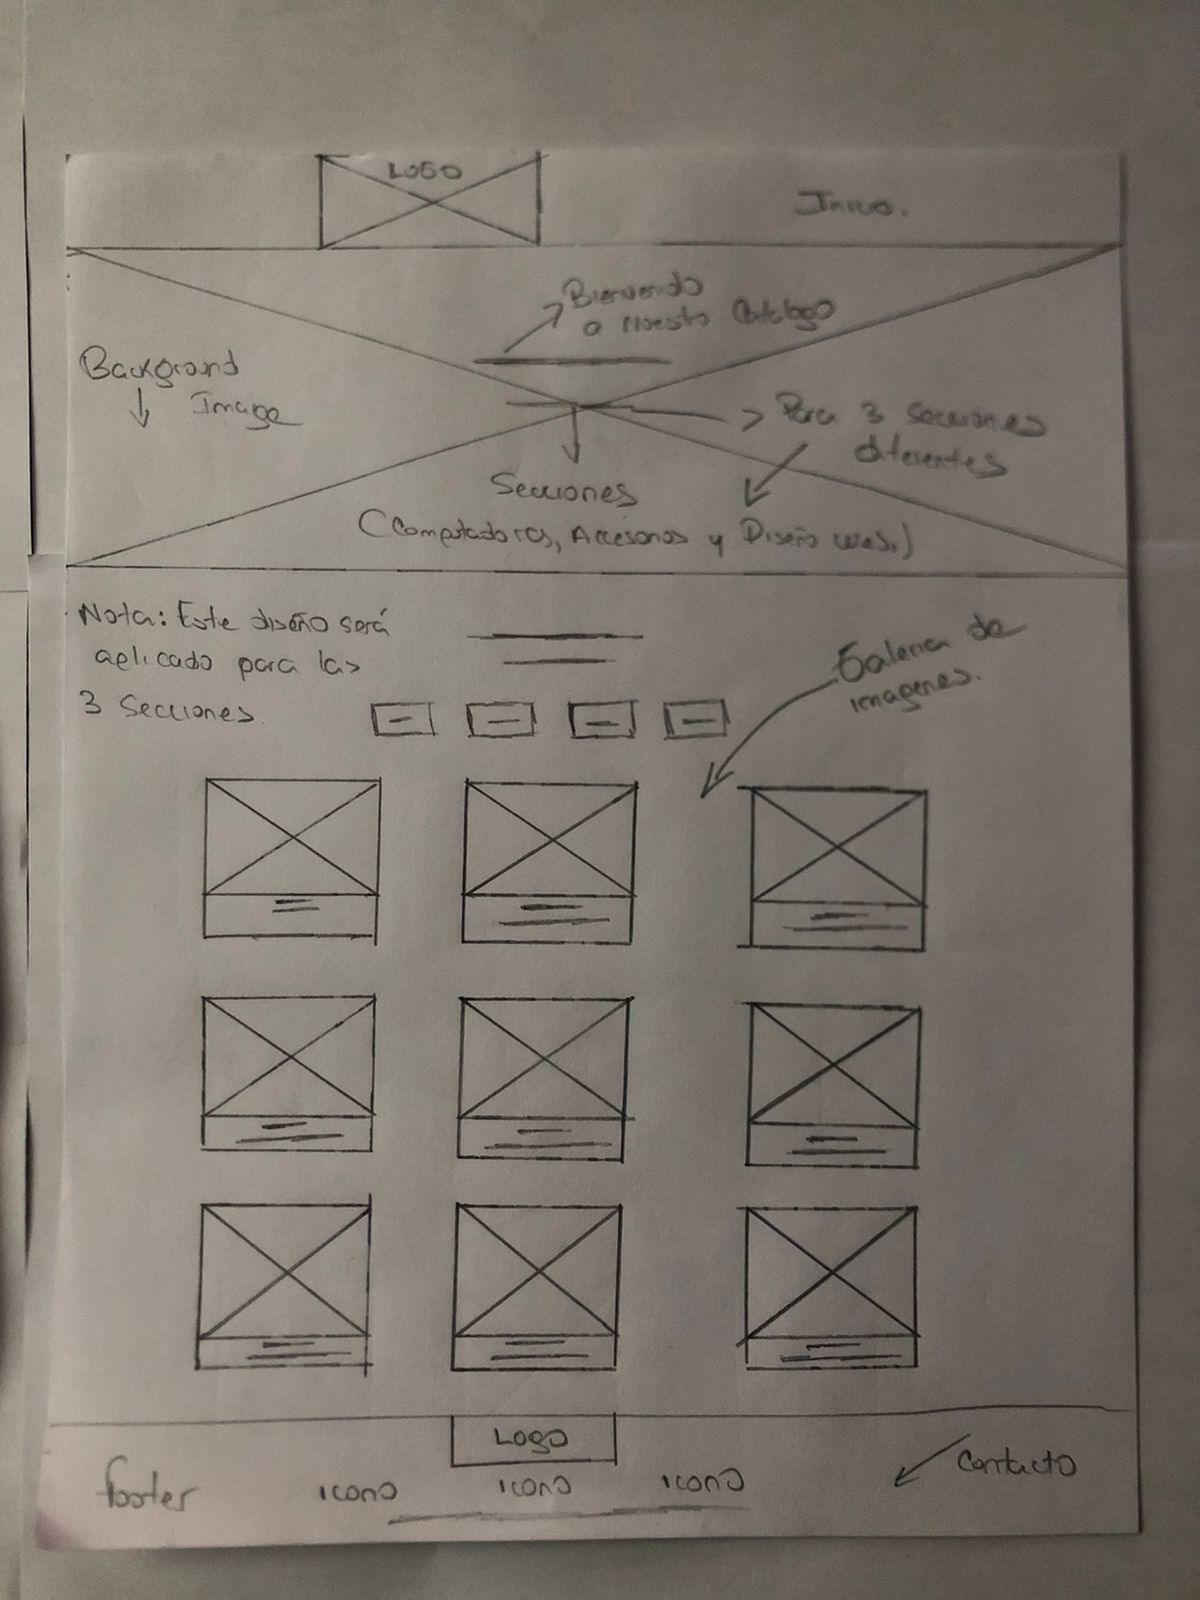 LOGO
Inicio.
Bienvenido
a nuestro Catálogo
Background
Image
Para 3 Secciones
diferentes
Secciones
(Computadoras, Accesorios y Diseño web.)
Nota: Este diseño será
aplicado para las
3 Secciones.
Galeria de
imagenes.
Logo
Contacto
footer
icono icono icono